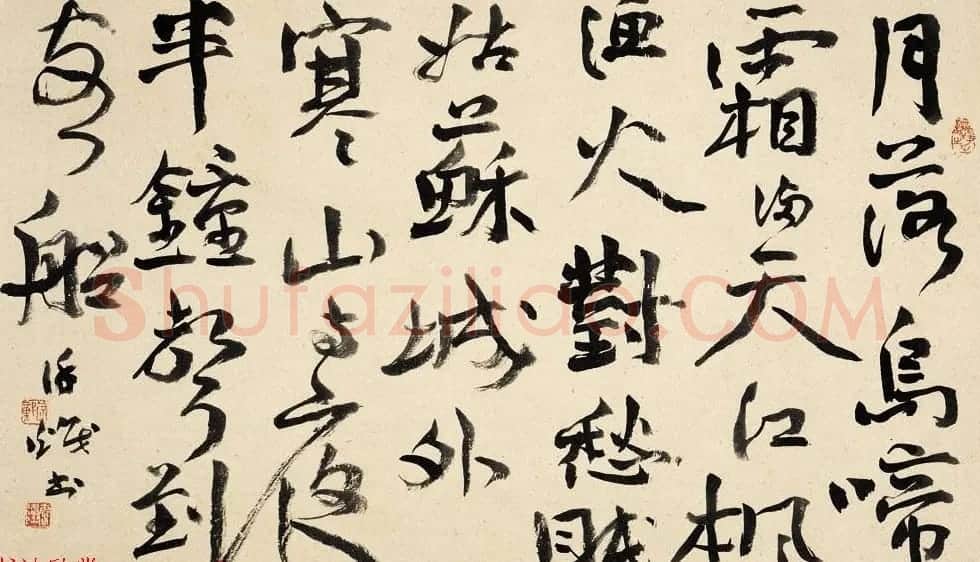 月落烏啼
霜滿天江楓
漁火對愁眠
姑蘇城外
寒山寺夜
半鐘聲到
客船
書
Shufaziliao.COM